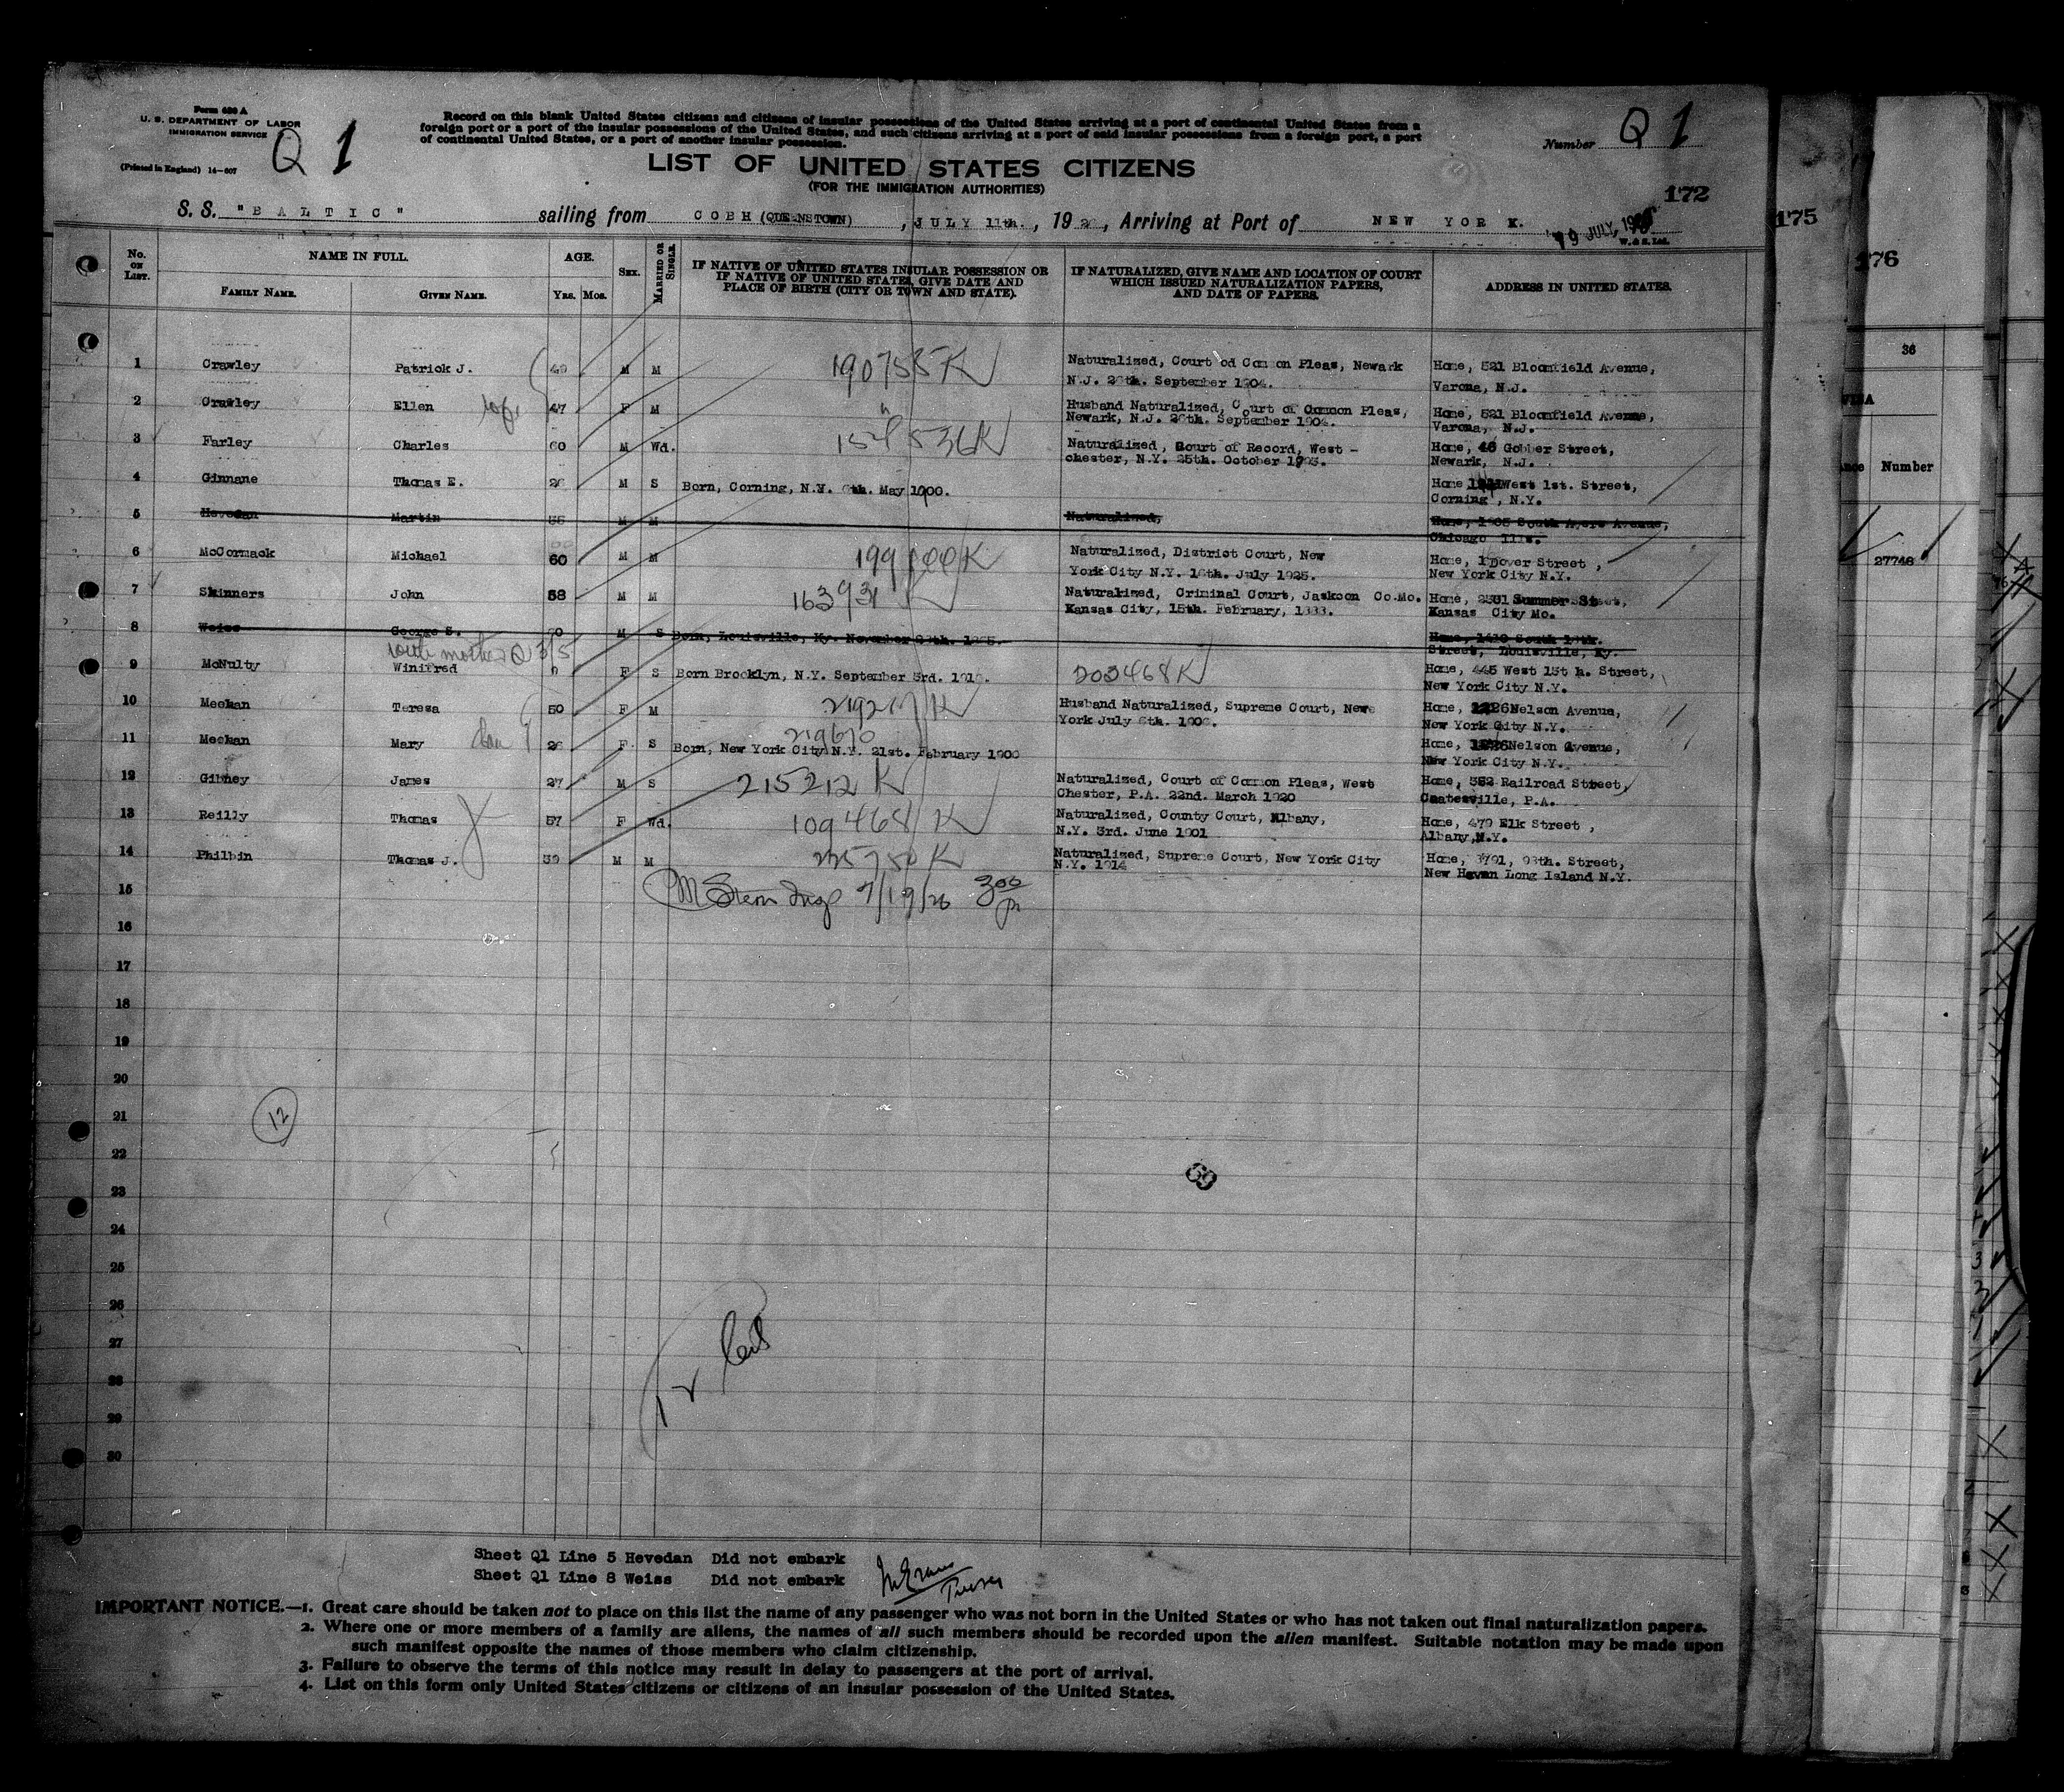 Form 630 A
U. S. DEPARTMENT OF LABOR
IMMIGRATION SERVICE
(Printed in England) 14—607
Q 1
Record on this blank United States citizens and citizens of insular possessions of the United States arriving at a port of continental United States from a
foreign port or a port of the insular possessions of the United States, and such citizens arriving at a port of said insular possessions from a foreign port, a port
of continental United States, or a port of another insular possession.
Number Q 1
LIST OF UNITED STATES CITIZENS
(FOR THE IMMIGRATION AUTHORITIES)
172
S. S. "BALTIC" sailing from COBH (QUEENSTOWN), JULY 11th., 1926, Arriving at Port of NEW YORK. 19 JULY, 1926
W. & S. Ltd.
No. ON LIST. NAME IN FULL. FAMILY NAME. GIVEN NAME. AGE. YRS. MOS. SEX. MARRIED OR SINGLE.
IF NATIVE OF UNITED STATES INSULAR POSSESSION OR
IF NATIVE OF UNITED STATES, GIVE DATE AND
PLACE OF BIRTH (CITY OR TOWN AND STATE).
IF NATURALIZED, GIVE NAME AND LOCATION OF COURT
WHICH ISSUED NATURALIZATION PAPERS,
AND DATE OF PAPERS.
ADDRESS IN UNITED STATES.
1 Crawley Patrick J. 49 M M 190755K Naturalized, Court od Common Pleas, Newark Home, 521 Bloomfield Avenue,
N.J. 26th. September 1904. Varona, N.J.
2 Crawley Ellen 47 F M " Husband Naturalized, Court of Common Pleas, Home, 521 Bloomfield Avenue,
Newark, N.J. 26th. September 1904. Varona, N.J.
3 Farley Charles 60 M Wd. Naturalized, Court of Record, West - Home, 46 Gobber Street,
chester, N.Y. 25th. October Newark, N.J.
4 Ginnane Thomas E. 26 M S Born, Corning, N.Y. 6th. May 1900. Home West 1st. Street,
Corning, N.Y.
5 Hevedan Martin 56 M M Naturalized, Home, 1905 South Ayers Avenue,
Chicago Ills.
6 McCormack Michael 60 M M Naturalized, District Court, New Home, 1 Dover Street,
York City N.Y. 16th. July 1925. New York City N.Y.
7 Skinners John 58 M M 163931 K Naturalized, Criminal Court, Jaskson Co.Mo. Home, Summer Street,
Kansas City, 15th. February, 1888. Kansas City Mo.
8 Weiss George S. 60 M S Born, Louisville, Ky. November Home, 1410 South
Street, Louisville, Ky.
with mother Q 3/5
9 McNulty Winifred F S Born Brooklyn, N.Y. September 3rd. 203468K Home, 445 West 15th. Street,
New York City N.Y.
10 Meehan Teresa 50 F M Husband Naturalized, Supreme Court, New Home, 1226 Nelson Avenua,
York July 6th. 1906. New York City N.Y.
219670
11 Meehan Mary 26 F S Born, New York City N.Y. 21st. February 1900 Home, 1226 Nelson Avenue,
New York City N.Y.
12 Gibney James 27 M S 215212 K Naturalized, Court of Common Pleas, West Home, 352 Railroad Street,
Chester, P.A. 22nd. March 1920 Coatesville, P.A.
13 Reilly Thomas 57 F Wd. 109468 K Naturalized, County Court, Albany, Home, 479 Elk Street,
N.Y. 3rd. June 1901 Albany, N.Y.
14 Philbin Thomas J. 39 M M 225750 K Naturalized, Supreme Court, New York City Home, 3791, 93th. Street,
N.Y. 1914 New Haven Long Island N.Y.
15 Stern Insp 7/19/26 3 00 pm
16
17
18
19
20
21
12
22
23
24
25
26
27
28
29
30
69
175
176
36
Number
27748
Sheet Q1 Line 5 Hevedan Did not embark
Sheet Q1 Line 8 Weiss Did not embark
Purser
IMPORTANT NOTICE.—1. Great care should be taken not to place on this list the name of any passenger who was not born in the United States or who has not taken out final naturalization papers.
2. Where one or more members of a family are aliens, the names of all such members should be recorded upon the alien manifest. Suitable notation may be made upon
such manifest opposite the names of those members who claim citizenship.
3. Failure to observe the terms of this notice may result in delay to passengers at the port of arrival.
4. List on this form only United States citizens or citizens of an insular possession of the United States.